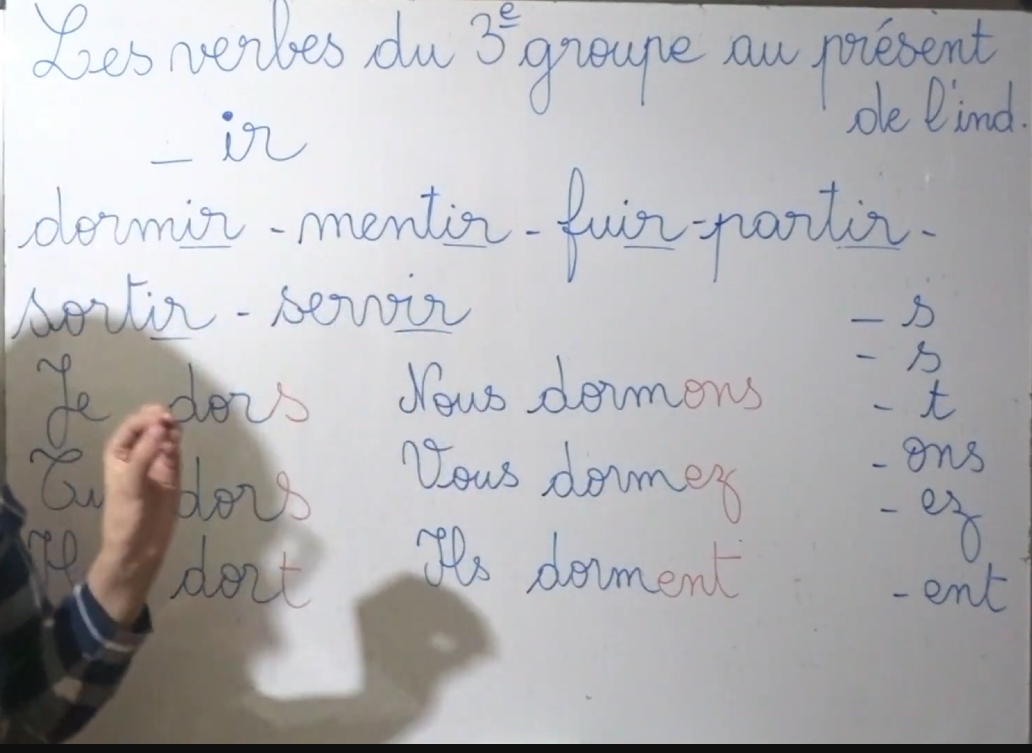 Les verbes du 3e groupe au présent
de l'ind.
- ir
dormir - mentir - fuir - partir -
sortir - servir
Je dors
Tu dors
Il dort
Nous dormons
Vous dormez
Ils dorment
- s
- s
- t
- ons
- ez
- ent